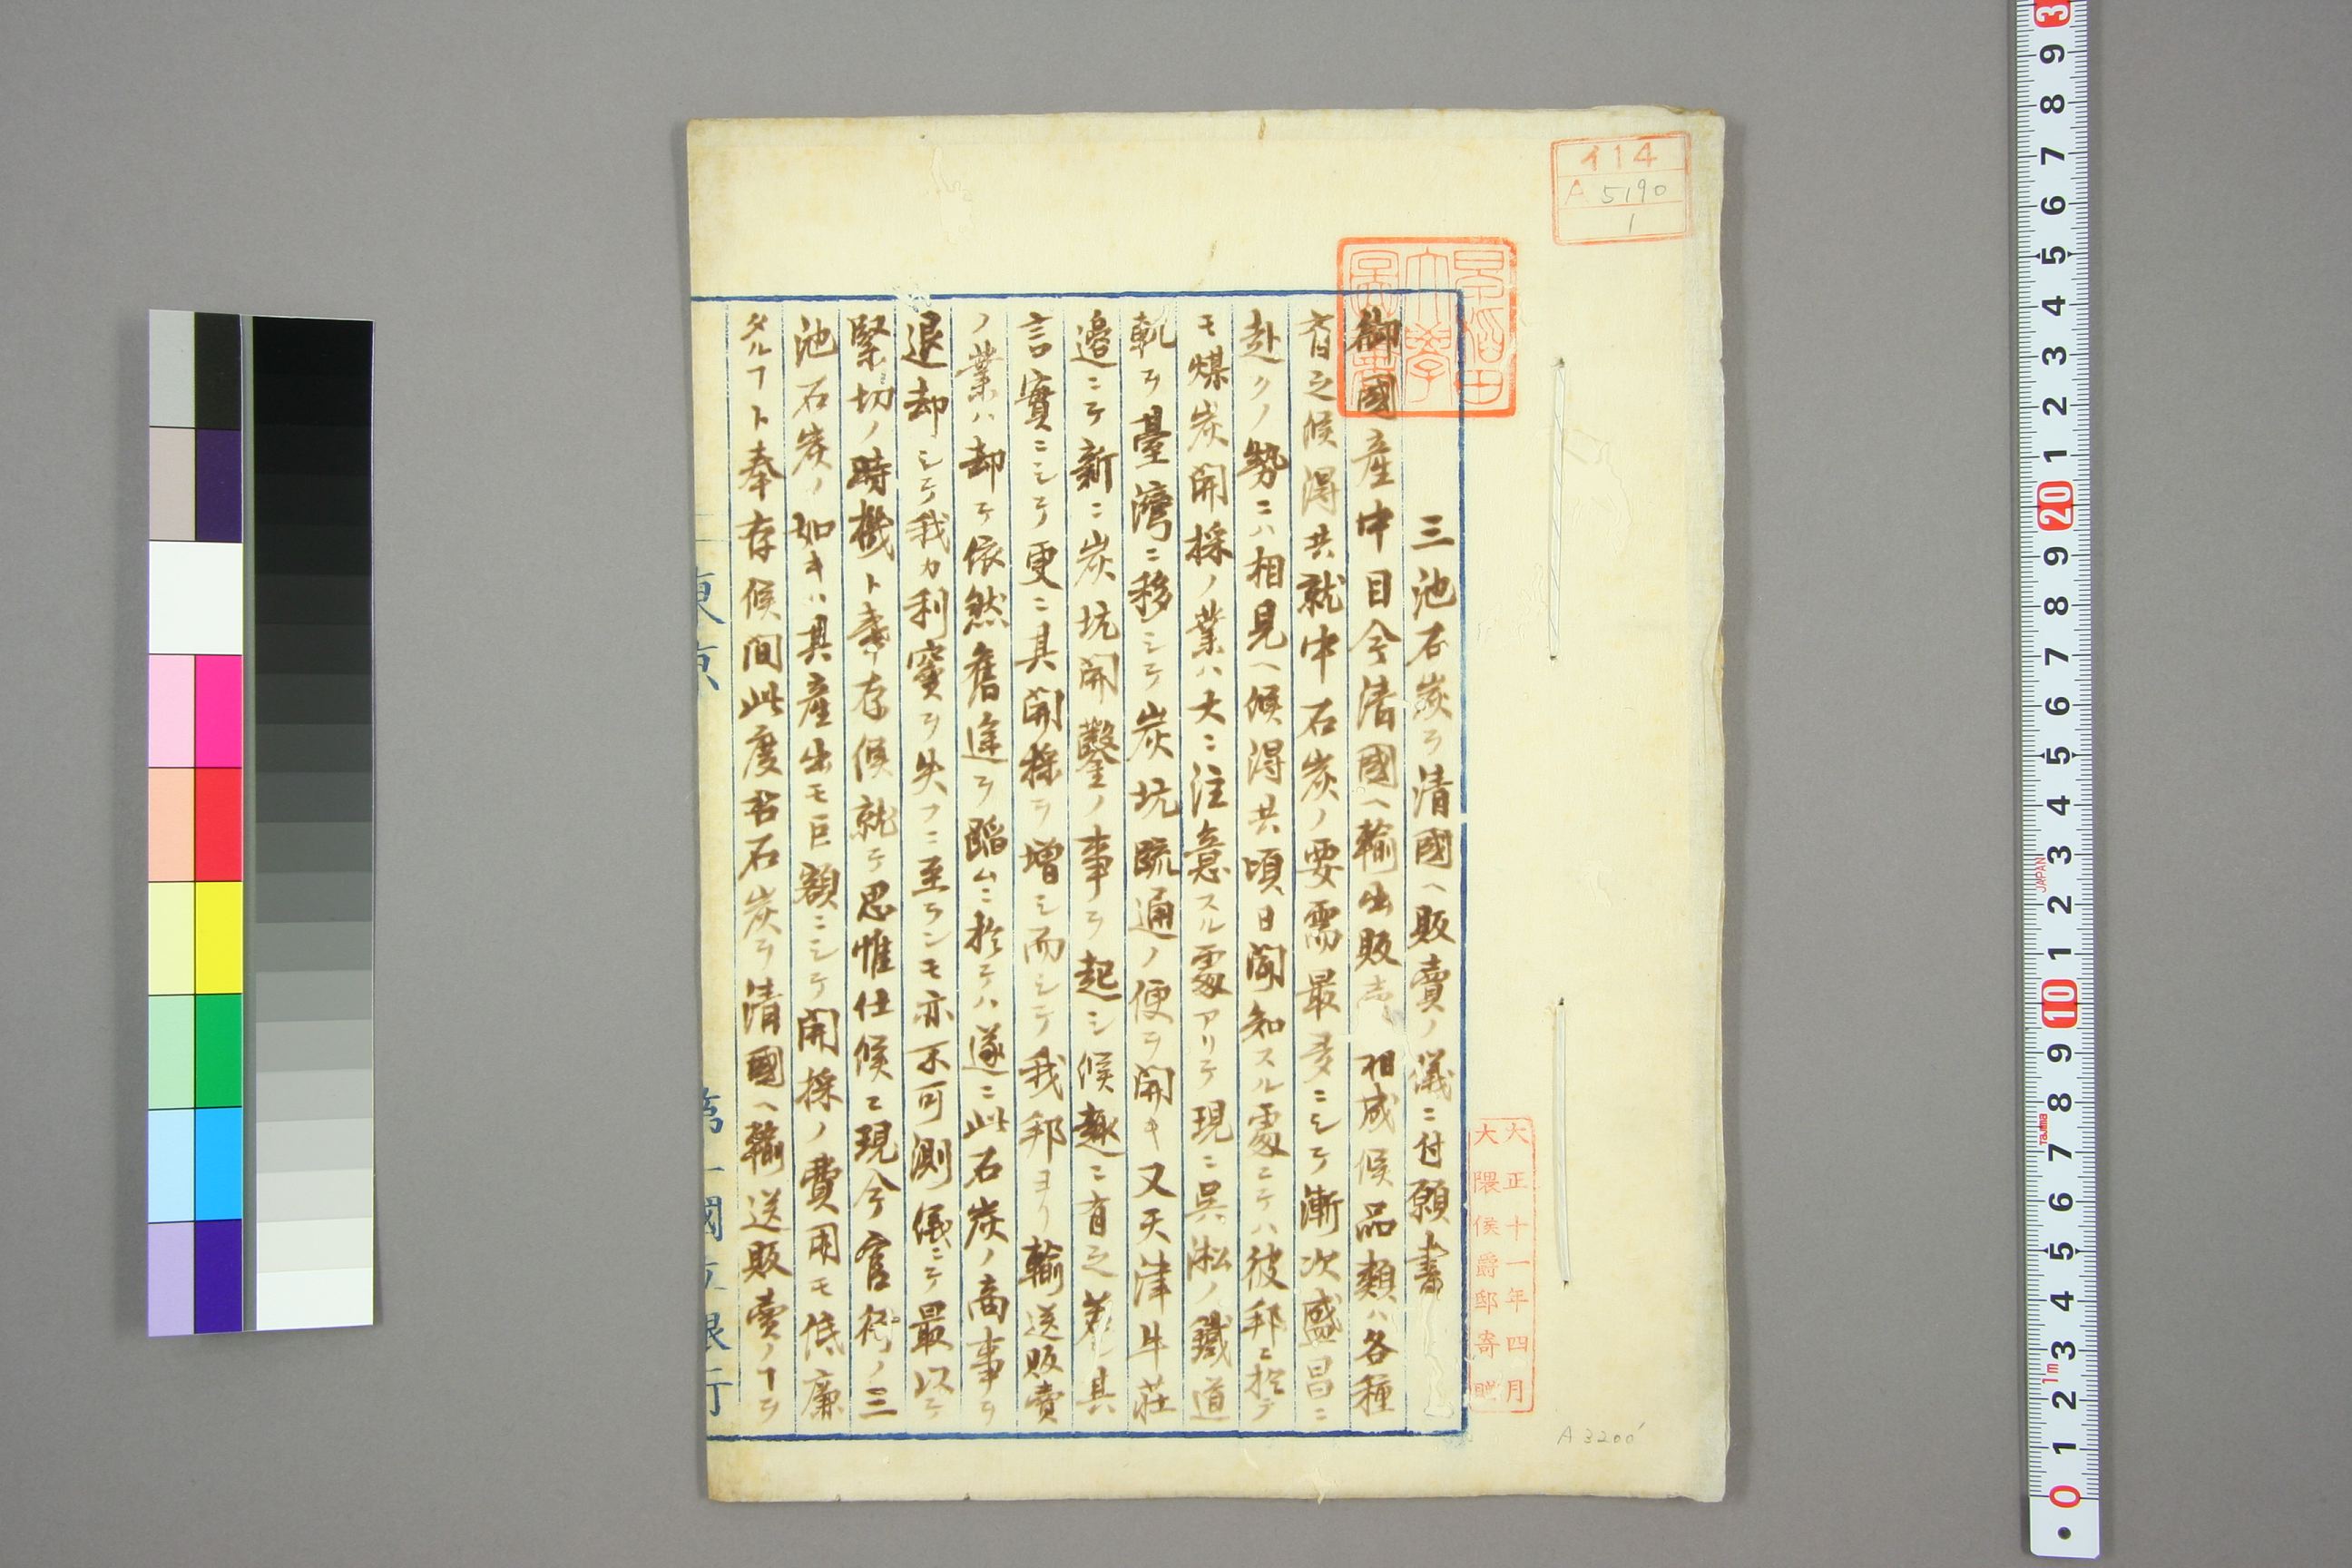 三池石炭ヲ清國ヘ販賣ノ儀ニ付願書
御國産中目今清國ヘ輸出販賣相成候品類ハ各種
有之候得共就中石炭ノ要需最多ニシテ漸次盛昌ニ
赴クノ勢ニハ相見ヘ候得共頃日聞知スル處ニテハ彼邦ニ於テ
モ煤炭開採ノ業ハ大ニ注意スル處アリテ現ニ呉淞ノ鐵道
軌ヲ臺灣ニ移シテ炭坑疏通ノ便ヲ開キ又天津牛荘
邊ニテ新ニ炭坑開鑿ノ事ヲ起シ候趣ニ有之若其
言實ニシテ更ニ其開採ヲ増シ而シテ我邦ヨリ輸送販賣
ノ業ハ却テ依然舊途ヲ蹈ムニ於テハ遂ニ此石炭ノ商事ヲ
退却シテ我カ利竇ヲ失フニ至ランモ亦不可測儀ニテ最以テ
緊切ノ時機ト奉存候就テ思惟仕候ニ現今官務ノ三
池石炭ノ如キハ其産出モ巨額ニシテ開採ノ費用モ低廉
タルヿト奉存候間此度右石炭ヲ清國ヘ輸送販賣ノヿヲ
東京
第一國立銀行
早稲田大學圖書
大正十一年四月
大隈侯爵邸寄贈
イ14
A 5190
1
A 3200
3
9
8
7
6
5
4
3
2
1
20
9
8
7
6
5
4
3
2
1
10
9
8
7
6
5
4
3
2
1
0
JAPAN
Tajima
1m